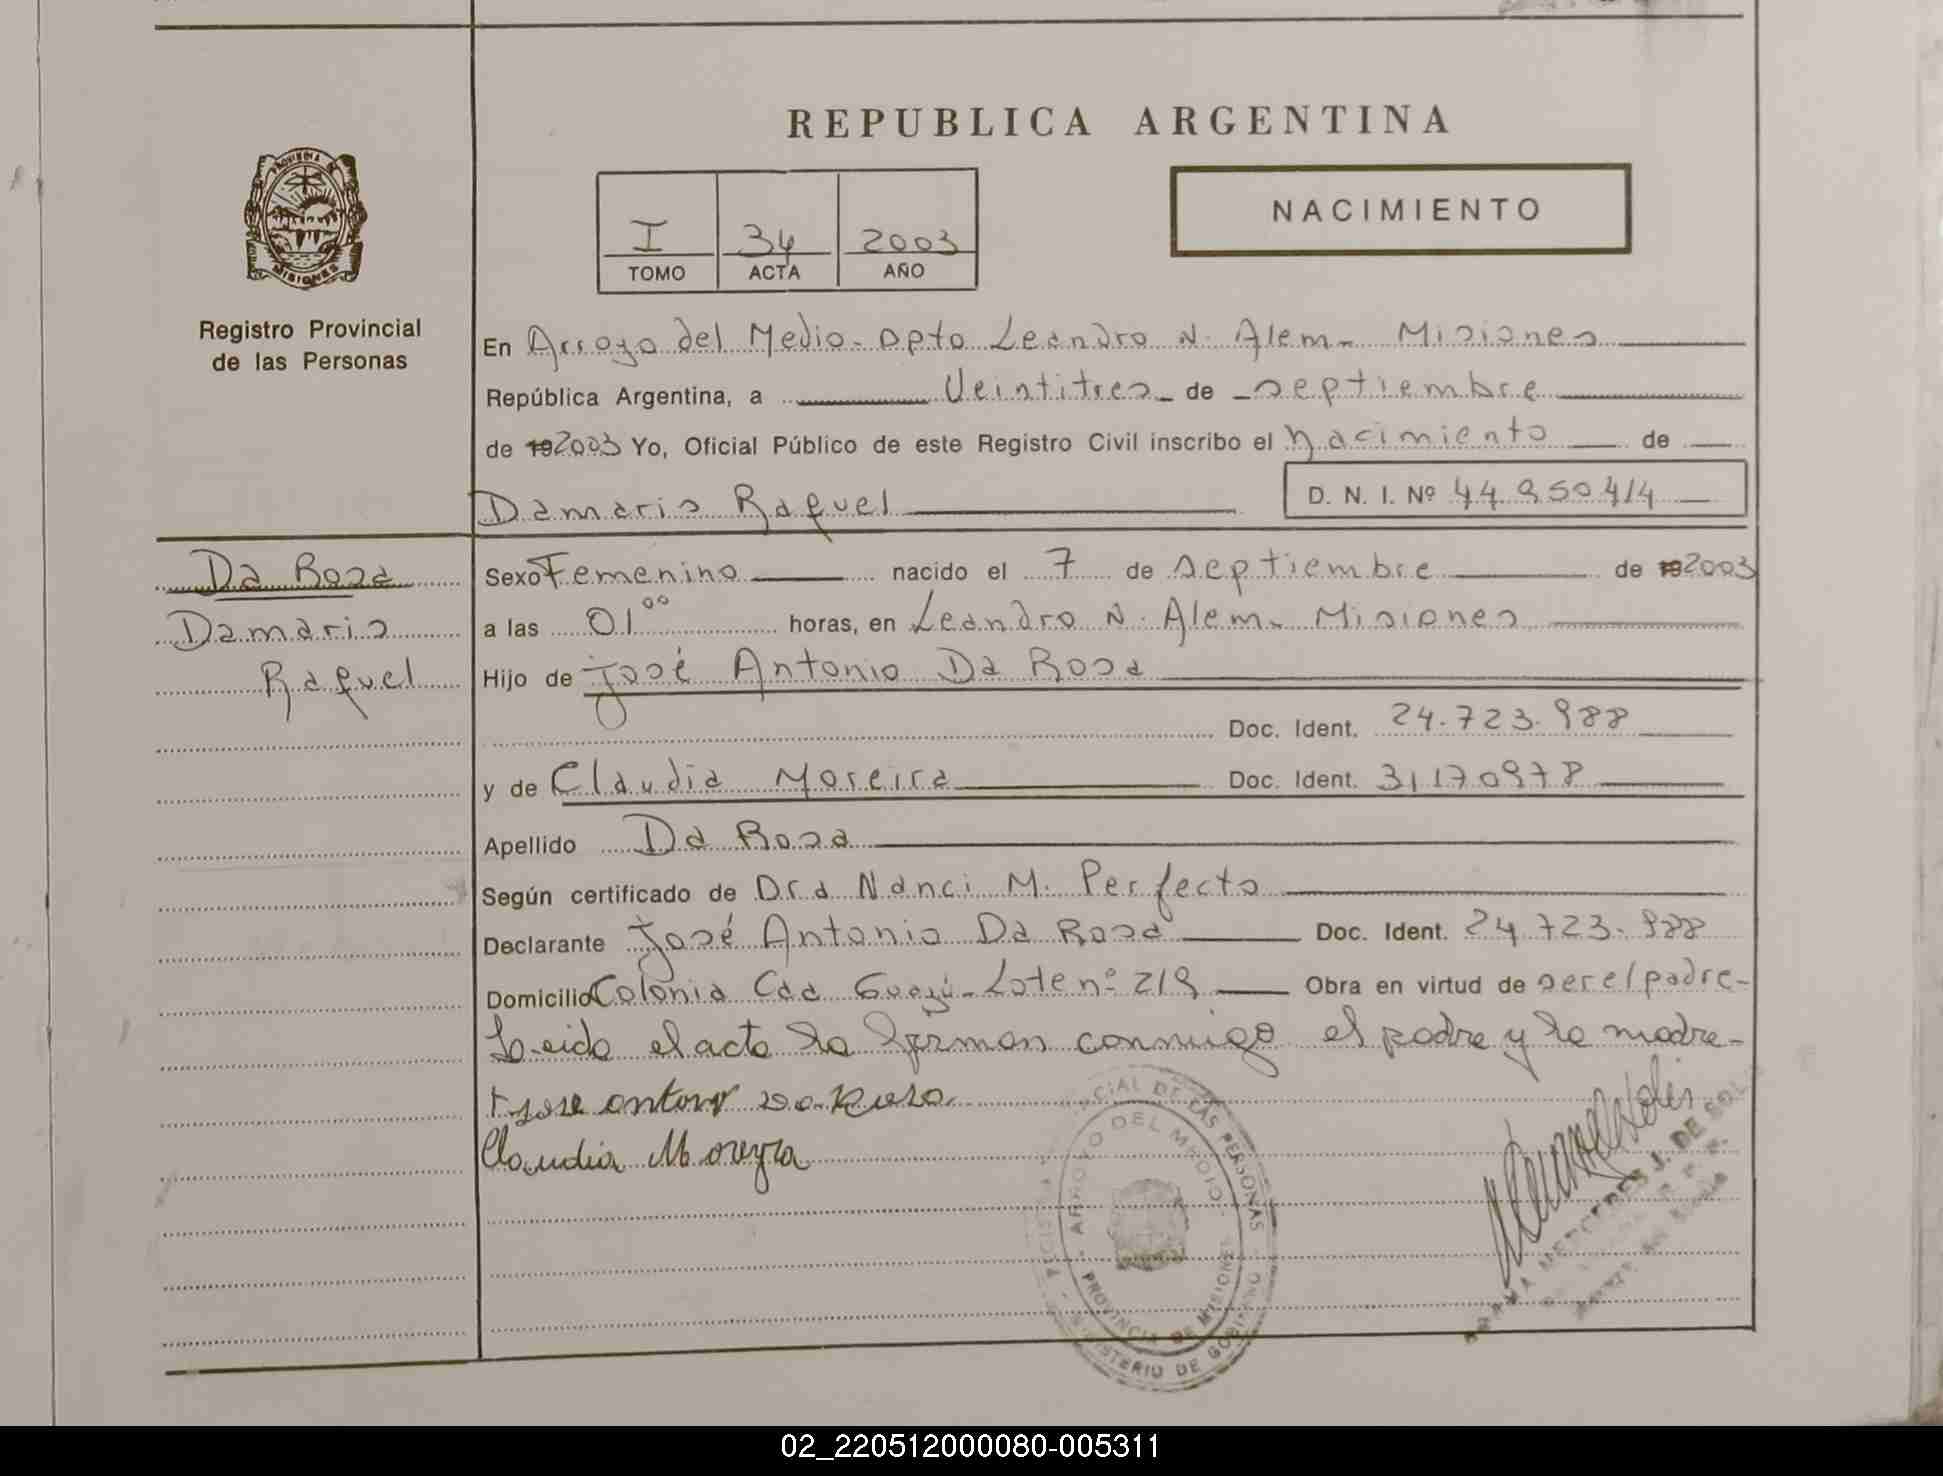 REPUBLICA ARGENTINA
PROVINCIA DE
MISIONES
Registro Provincial
de las Personas
I 34 2003
TOMO ACTA AÑO
NACIMIENTO
En Arroyo del Medio - Dpto Leandro N. Alem - Misiones
República Argentina, a Veintitres de septiembre
de 19 2003 Yo, Oficial Público de este Registro Civil inscribo el nacimiento de
Damaris Raquel D. N. I. Nº 44.950414
Da Rosa
Damaris
Raquel
Sexo Femenino nacido el 7 de septiembre de 19 2003
a las 01 00 horas, en Leandro N. Alem - Misiones
Hijo de José Antonio Da Rosa
Doc. Ident. 24.723.988
y de Claudia Moreira Doc. Ident. 31170978
Apellido Da Rosa
Según certificado de Dra Nanci M. Perfecto
Declarante José Antonio Da Rosa Doc. Ident. 24.723.988
Domicilio Colonia Caa Guazú - Lote nº 219 Obra en virtud de ser el padre -
Leido el acta la firman conmigo el padre y la madre -
Claudia Moreyra
ARROYO DEL MEDIO
PROVINCIA DE MISIONES
MERCEDES J. DE SOLIS
02_220512000080-005311